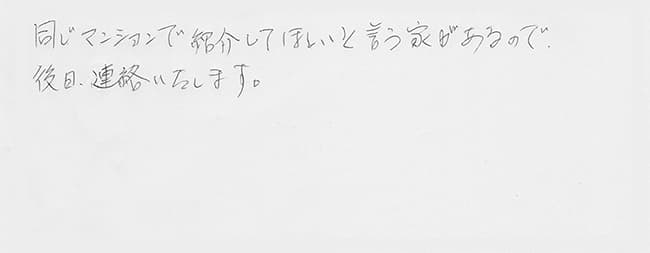 同じマンションで紹介してほしいと言う家があるので、
後日、連絡いたします。